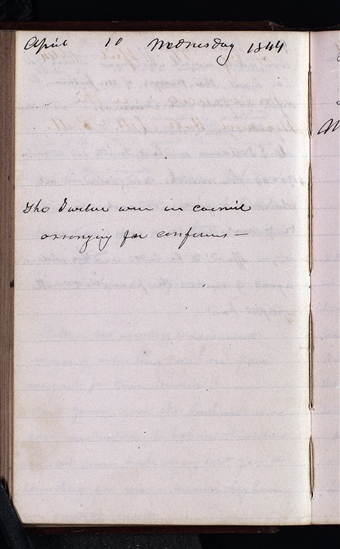 April 10 Wednesday 1844
The Twelve were in council
arranging for conferens —